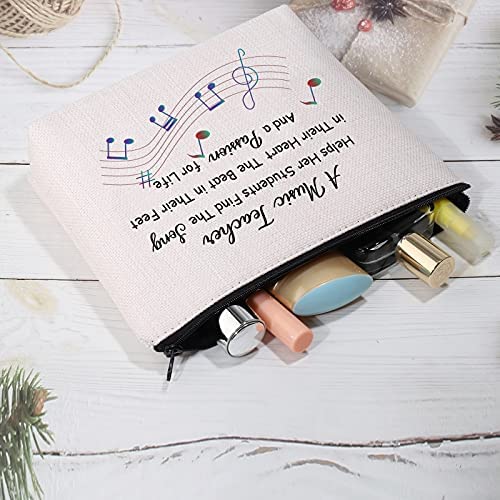 A Music Teacher
Helps Her Students Find The Song
in Their Heart The Beat in Their Feet
And a Passion for Life